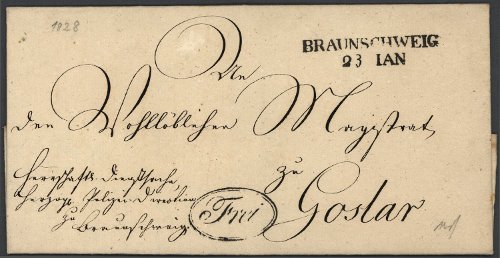 1828
BRAUNSCHWEIG
23 IAN
An
den Wohllöblichen Magistrat
zu
Goslar
Herrschaftl. Dienstsache,
Herzogl. Polizei Direction
zu
Braunschweig.
Frei